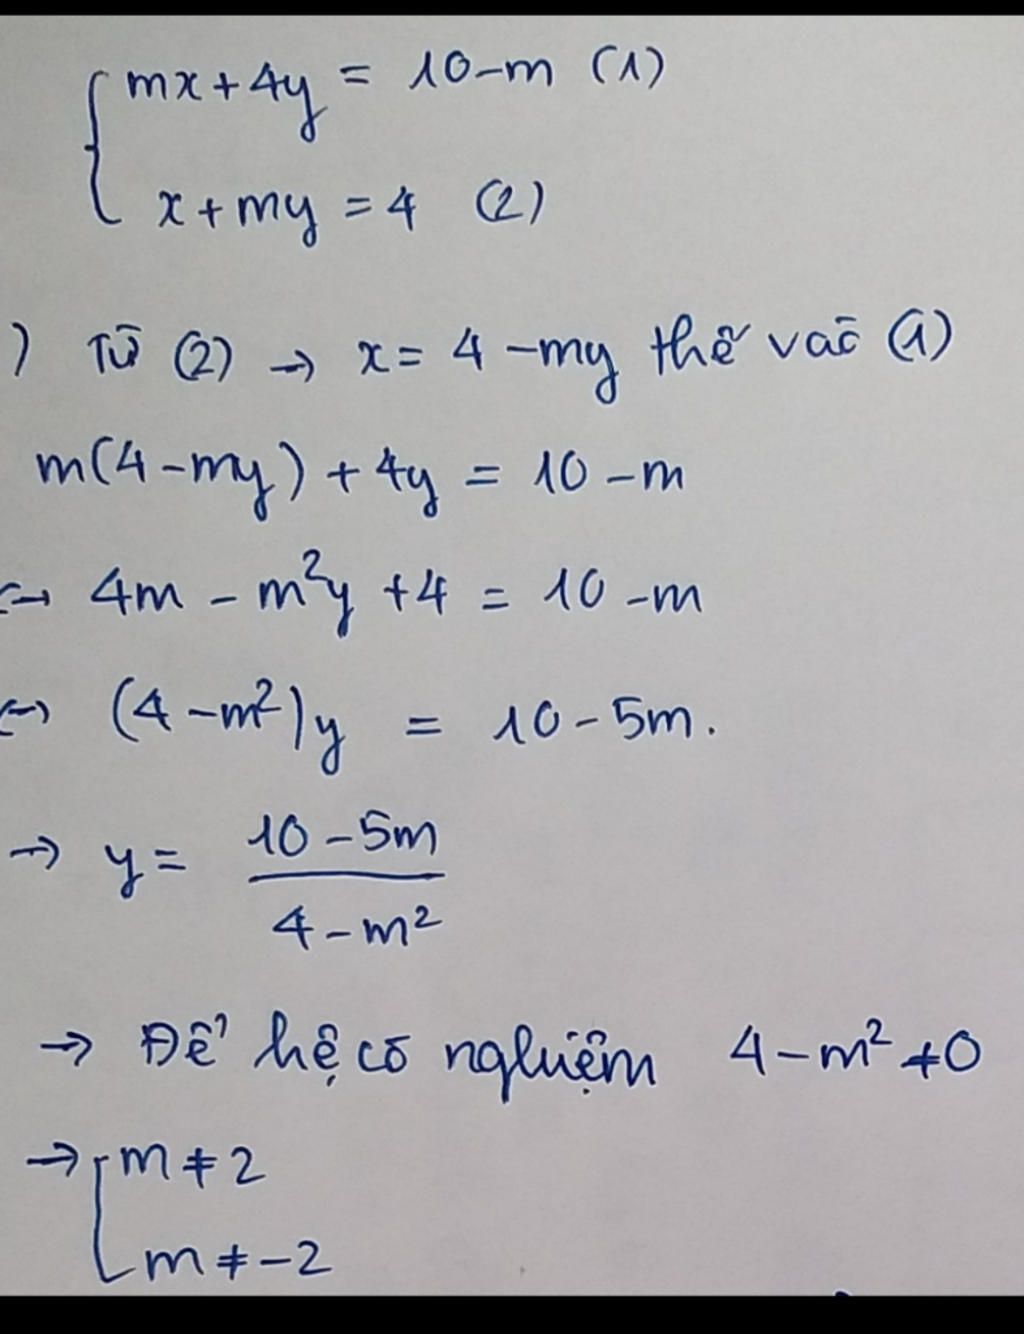 mx + 4y = 10 - m (1)
x + my = 4 (2)
) Từ (2) → x = 4 - my thế vào (1)
m(4 - my) + 4y = 10 - m
↔ 4m - m²y + 4 = 10 - m
↔ (4 - m²)y = 10 - 5m.
→ y = 10 - 5m
4 - m²
→ Để hệ có nghiệm 4 - m² ≠ 0
→ [ m ≠ 2
m ≠ -2